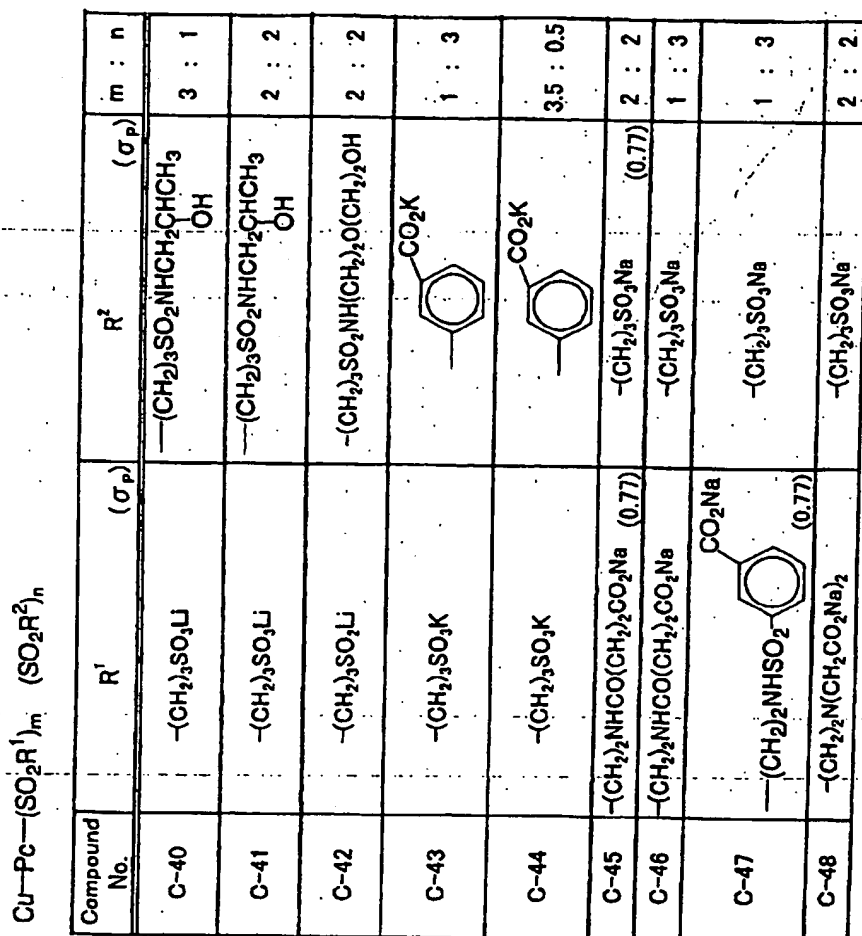 Cu-Pc-(SO₂R¹)ₘ (SO₂R²)ₙ
Compound No. R¹ (σₚ) R² (σₚ) m : n
C-40 -(CH₂)₃SO₃Li —(CH₂)₃SO₂NHCH₂CHCH₃ 3 : 1
OH
C-41 -(CH₂)₃SO₃Li —(CH₂)₃SO₂NHCH₂CHCH₃ 2 : 2
OH
C-42 -(CH₂)₃SO₂Li -(CH₂)₃SO₂NH(CH₂)₂O(CH₂)₂OH 2 : 2
C-43 -(CH₂)₃SO₃K CO₂K 1 : 3
C-44 -(CH₂)₃SO₃K CO₂K 3.5 : 0.5
C-45 -(CH₂)₂NHCO(CH₂)₂CO₂Na (0.77) -(CH₂)₃SO₃Na (0.77) 2 : 2
C-46 -(CH₂)₂NHCO(CH₂)₂CO₂Na -(CH₂)₃SO₃Na 1 : 3
C-47 —(CH₂)₂NHSO₂ CO₂Na (0.77) -(CH₂)₃SO₃Na 1 : 3
C-48 -(CH₂)₂N(CH₂CO₂Na)₂ -(CH₂)₃SO₃Na 2 : 2